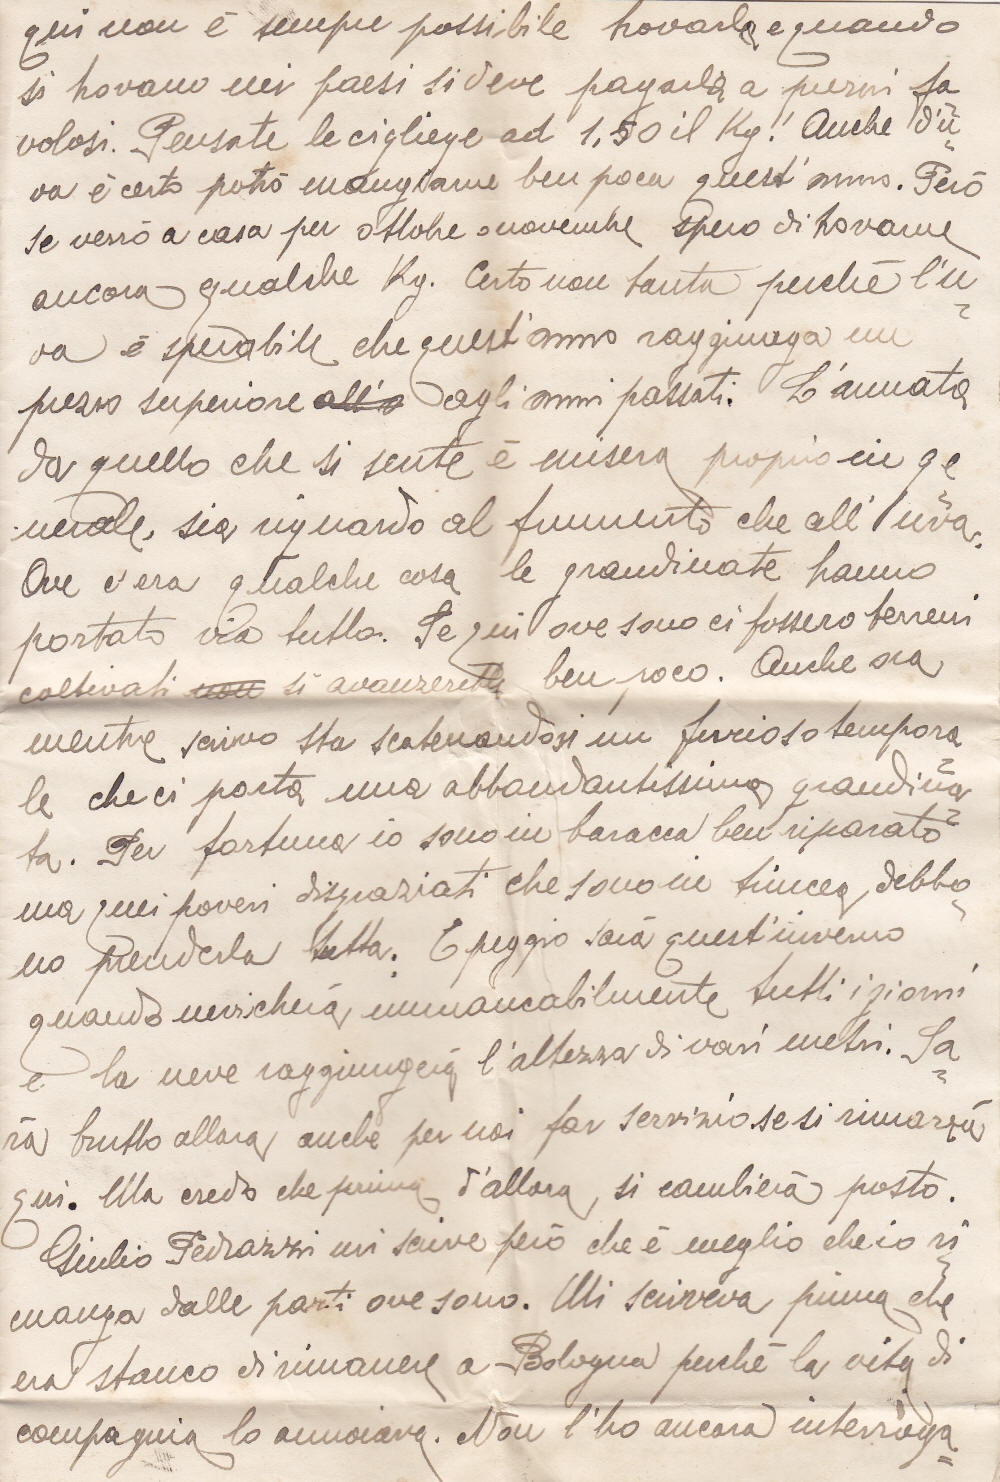 qui non è sempre possibile trovarla, e quando
si trovano nei paesi si deve pagarla a prezzi fa
volosi. Pensate le cigliege ad 1,50 il Kg! Anche d'u=
va è certo potrò mangiarne ben poca quest'anno. Però
se verrò a casa per ottobre o novembre spero di trovarne
ancora qualche Kg. Certo non tanta perchè l'u=
va è sperabile che quest'anno raggiunga un
prezzo superiore all'a agli anni passati. L'annata
da quello che si sente è misera proprio in ge=
nerale, sia riguardo al frumento che all'uva.
Ove c'era qualche cosa le grandinate hanno
portato via tutto. Se qui ove sono ci fossero terreni
coltivati non si avanzerebbe ben poco. Anche ora
mentre scrivo sta scatenandosi un furioso tempora=
le che ci porta una abbondantissima grandina=
ta. Per fortuna io sono in baracca ben riparato
ma quei poveri disgraziati che sono in trincea, debbo=
no prenderla tutta. E peggio sarà quest'inverno
quando nevicherà immancabilmente tutti i giorni
e la neve raggiungerà l'altezza di vari metri. Sa=
rà brutto allora anche per noi far servizio se si rimarrà
qui. Ma credo che prima d'allora, si cambierà posto.
Giulio Pedrazzi mi scrive però che è meglio che io ri=
manga dalle parti ove sono. Mi scriveva prima che
era stanco di rimanere a Bologna perchè la vita di
compagnia lo annoiava. Non l'ho ancora interroga=